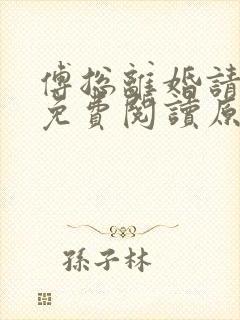 傅總離婚請
免費閱讀原
孫子林